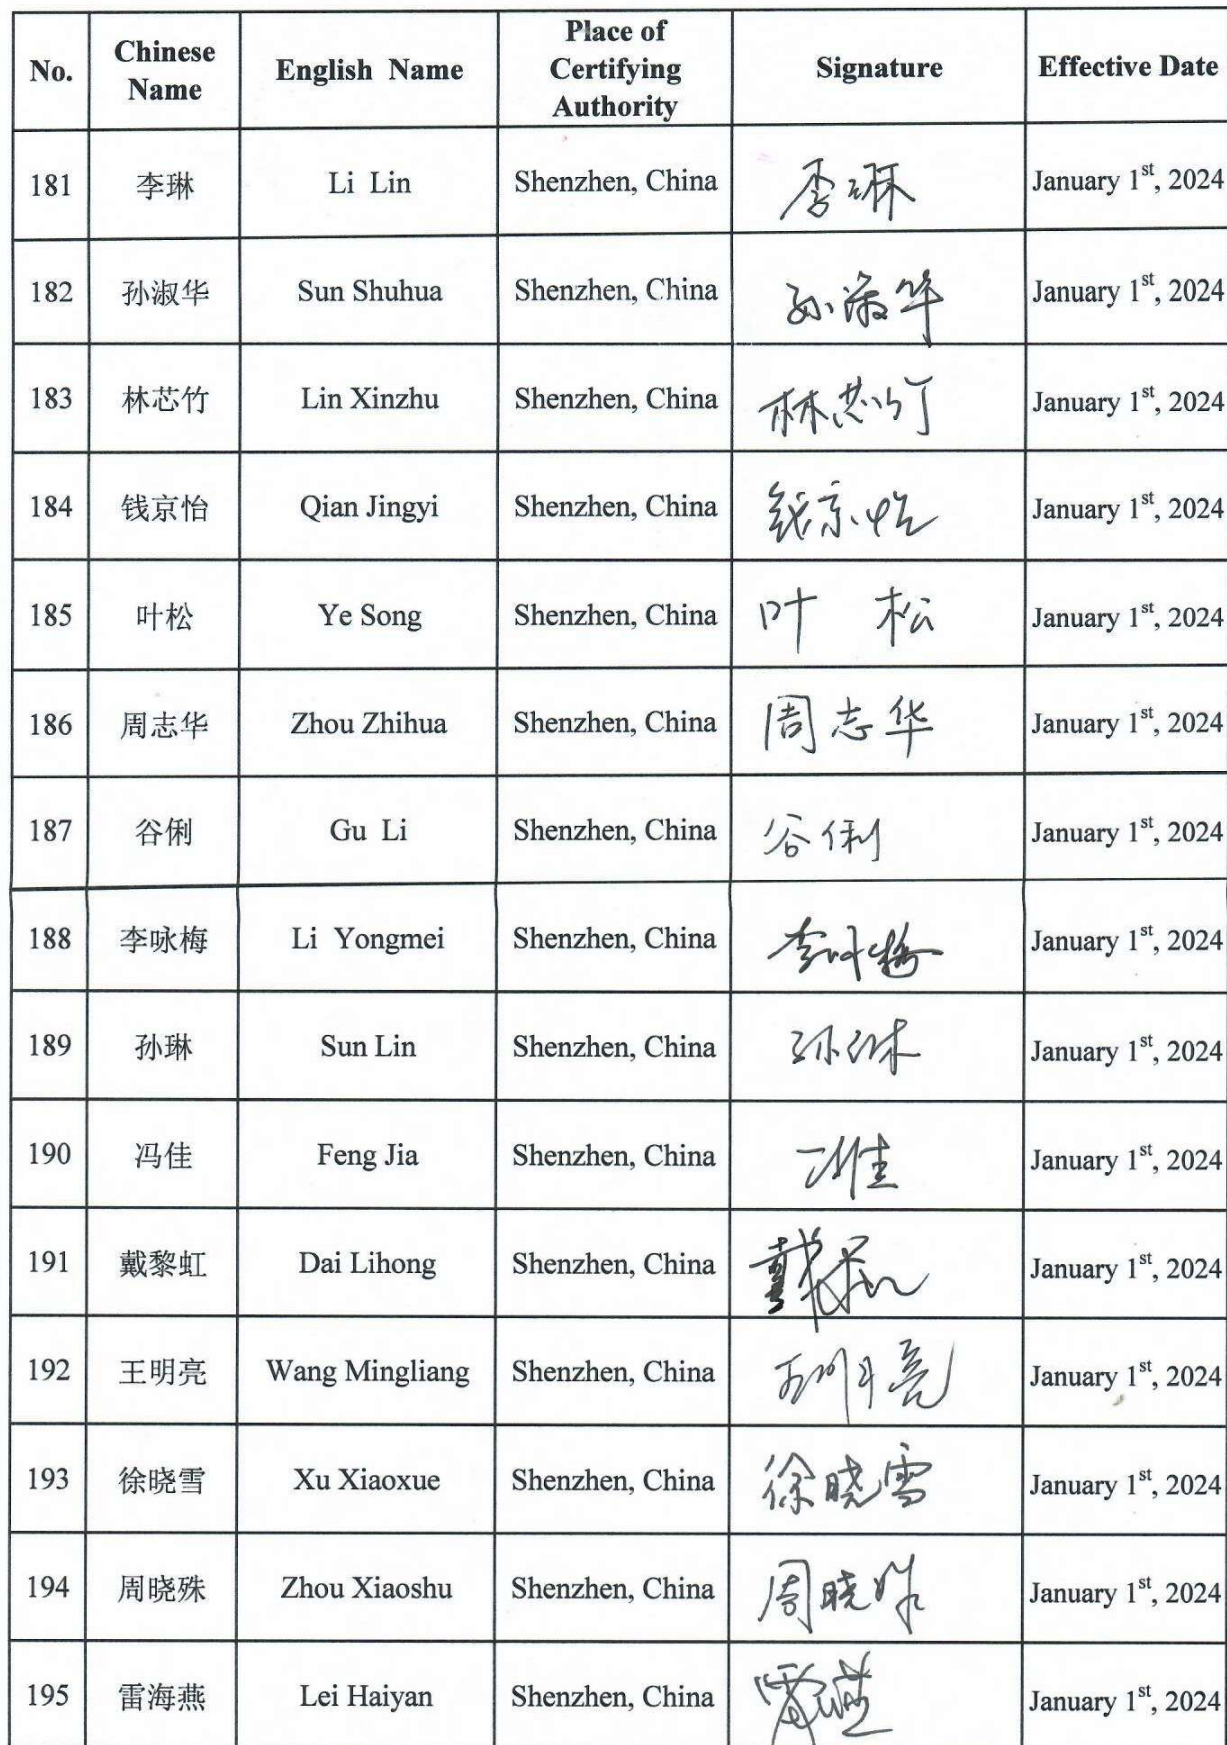 No. Chinese Name English Name Place of Certifying Authority Signature Effective Date
181 李琳 Li Lin Shenzhen, China 李琳 January 1st, 2024
182 孙淑华 Sun Shuhua Shenzhen, China 孙淑华 January 1st, 2024
183 林芯竹 Lin Xinzhu Shenzhen, China 林芯竹 January 1st, 2024
184 钱京怡 Qian Jingyi Shenzhen, China 钱京怡 January 1st, 2024
185 叶松 Ye Song Shenzhen, China 叶松 January 1st, 2024
186 周志华 Zhou Zhihua Shenzhen, China 周志华 January 1st, 2024
187 谷俐 Gu Li Shenzhen, China 谷俐 January 1st, 2024
188 李咏梅 Li Yongmei Shenzhen, China 李咏梅 January 1st, 2024
189 孙琳 Sun Lin Shenzhen, China 孙琳 January 1st, 2024
190 冯佳 Feng Jia Shenzhen, China 冯佳 January 1st, 2024
191 戴黎虹 Dai Lihong Shenzhen, China January 1st, 2024
192 王明亮 Wang Mingliang Shenzhen, China 王明亮 January 1st, 2024
193 徐晓雪 Xu Xiaoxue Shenzhen, China 徐晓雪 January 1st, 2024
194 周晓殊 Zhou Xiaoshu Shenzhen, China 周晓殊 January 1st, 2024
195 雷海燕 Lei Haiyan Shenzhen, China January 1st, 2024